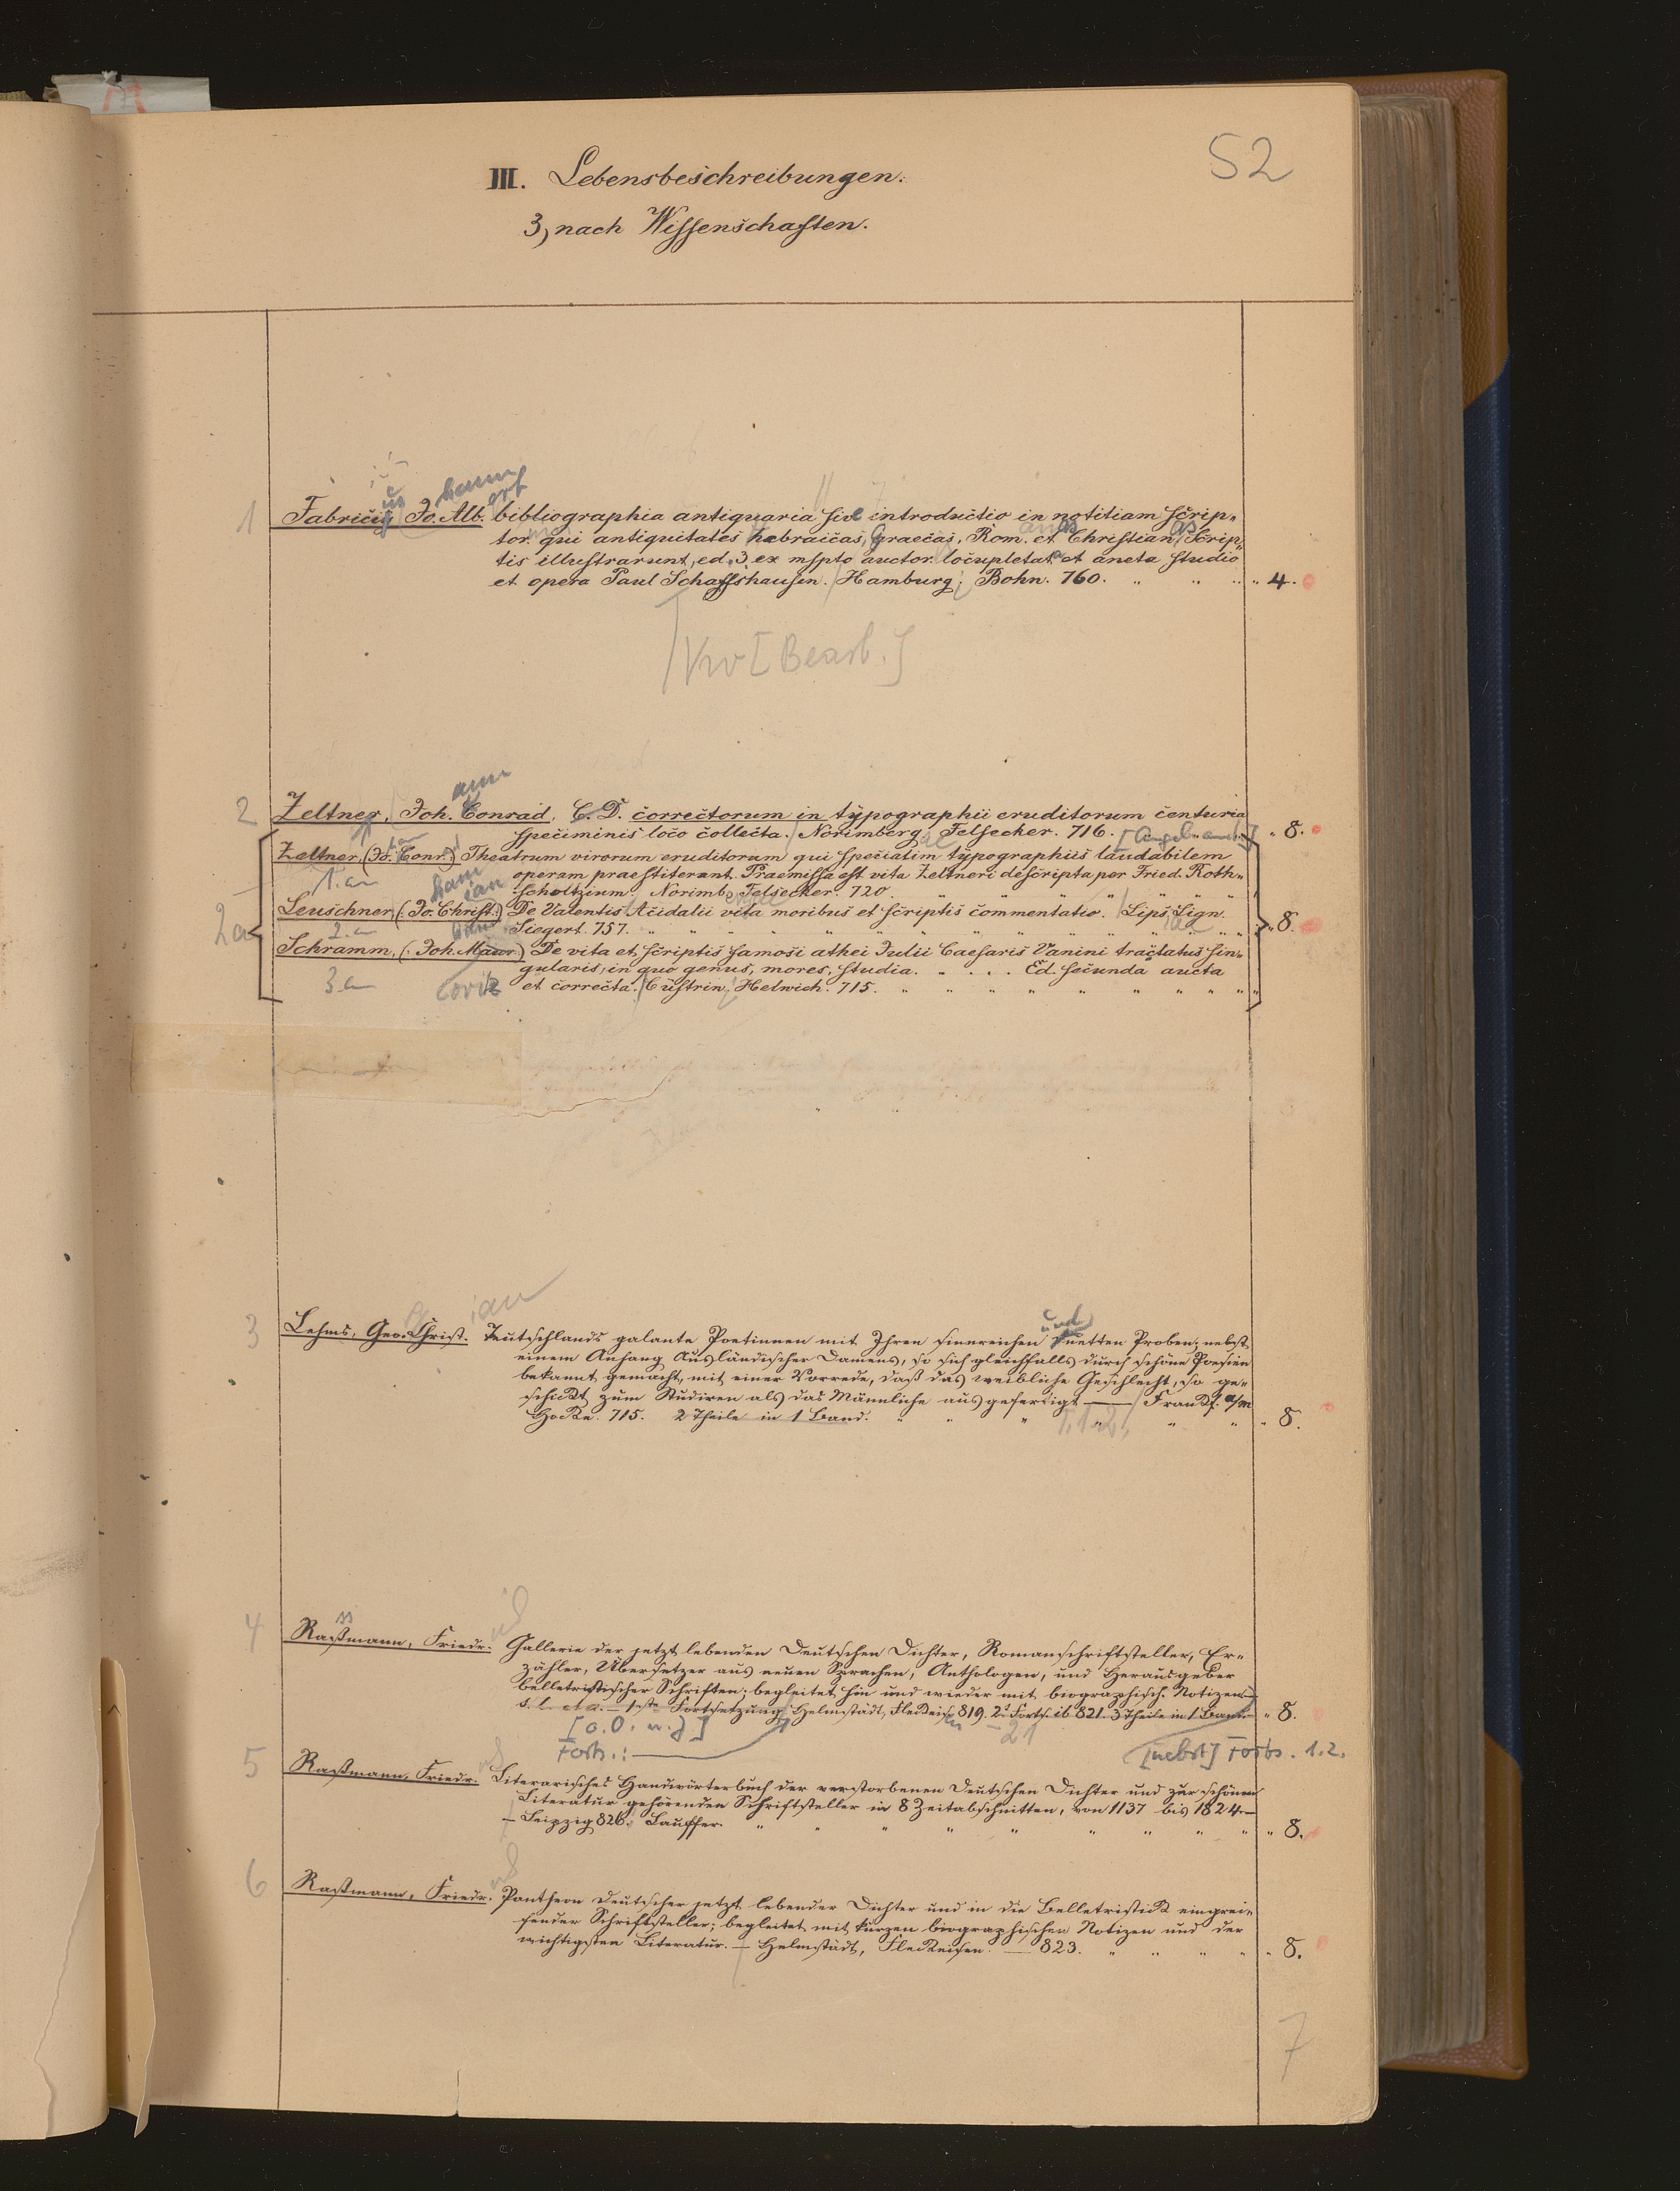 52
III. Lebensbeschreibungen.
3, nach Wissenschaften.
1 Fabricii Jo. Alb. bibliographia antiquaria sive introductio in notitiam scrip=
tor. qui antiquitates hebraicas, Graecas, Rom. et Christian. Scrip=
tis illustrarunt, ed. 3. ex msspto auctor. locupletata et aucta studio
et opera Paul Schaffshausen. Hamburg, Bohn. 760. " " " " 4.
[Bearb.]
2 Zeltner, Joh. Conrad, C. D. correctorum in typographii eruditorum centuria
speciminis loco collecta. Norimberg. Felsecker. 716. " 8.
2a Zeltner, (Jo. Conr.) Theatrum virorum eruditorum qui speciatim typographiis laudabilem
1. an operam praestiterunt. Praemissa est vita Zeltneri descripta per Fried. Roth=
scholtzium. Norimb. Felsecker. 720. " " " " "
Leuschner (: Jo. Christ:) De Valentis Acidalii vita moribus et scriptis commentatio. Lips. Lign.
2. an Siegert. 757. " " " " " " " " " 8.
Schramm, (: Joh. Maur:) De vita et scriptis famosi athei Julii Caesaris Vanini tractatus sin=
gularis, in quo genus, mores, studia. . . . . Ed. secunda aucta
3. an et correcta. Cüstrin. Helwich. 715. " " " " " " " "
3 Lehms, Geo. Christ. Teutschlands galante Poetinnen mit Ihren sinnreichen und netten Proben; nebst
einem Anhang Ausländischer Damens, so sich gleichfalls durch schöne Poesien
bekannt gemacht, mit einer Vorrede, daß das weibliche Geschlecht, so ge=
schickt zum Studiren als das Männliche ausgefertigt — Frankf. a/m
Hocke. 715. 2 Theile in 1 Band. " " " " " " " 8.
T. 1-2.
4 Raßmann, Friedr. Gallerie der jetzt lebenden Deutschen Dichter, Romanschriftsteller, Er=
zähler, Übersetzer aus neuen Sprachen, Anthologen, und Herausgeber
belletristischer Schriften; begleitet hin und wieder mit biographisch. Notizen. —
s. l. et a. — 1ste Fortsetzung Helmstädt, Fleckeisen 819. 2te Forts. ib 821. 3 Theile in 1 Band. " 8.
[o. O. u. J] - 21
Forts.: — [nebst] Forts. 1.2.
5 Raßmann, Friedr. Literarisches Handwörterbuch der verstorbenen Deutschen Dichter und zur schönen
Literatur gehörenden Schriftsteller in 8 Zeitabschnitten, von 1137 bis 1824. —
— Leipzig 826. Lauffer. " " " " " " " " " " 8.
6 Raßmann, Friedr. Pantheon Deutscher jetzt lebender Dichter und in die Belletristick eingrei=
fender Schriftsteller; begleitet mit kurzen biographischen Notizen und der
wichtigsten Literatur. — Helmstädt, Fleckeisen. — 823. " " " " " 8.
7